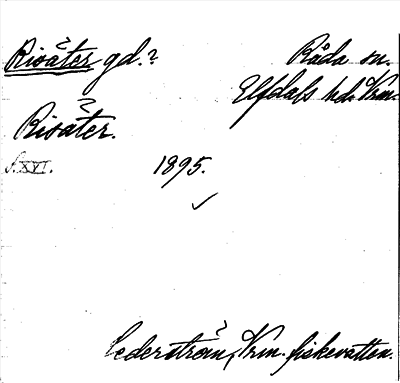 Risåter gd.? Råda sn.
Elfdals hd. Vrm.
Risåter.
S. XVI. 1895.
Cederström, Vrm. fiskevatten.